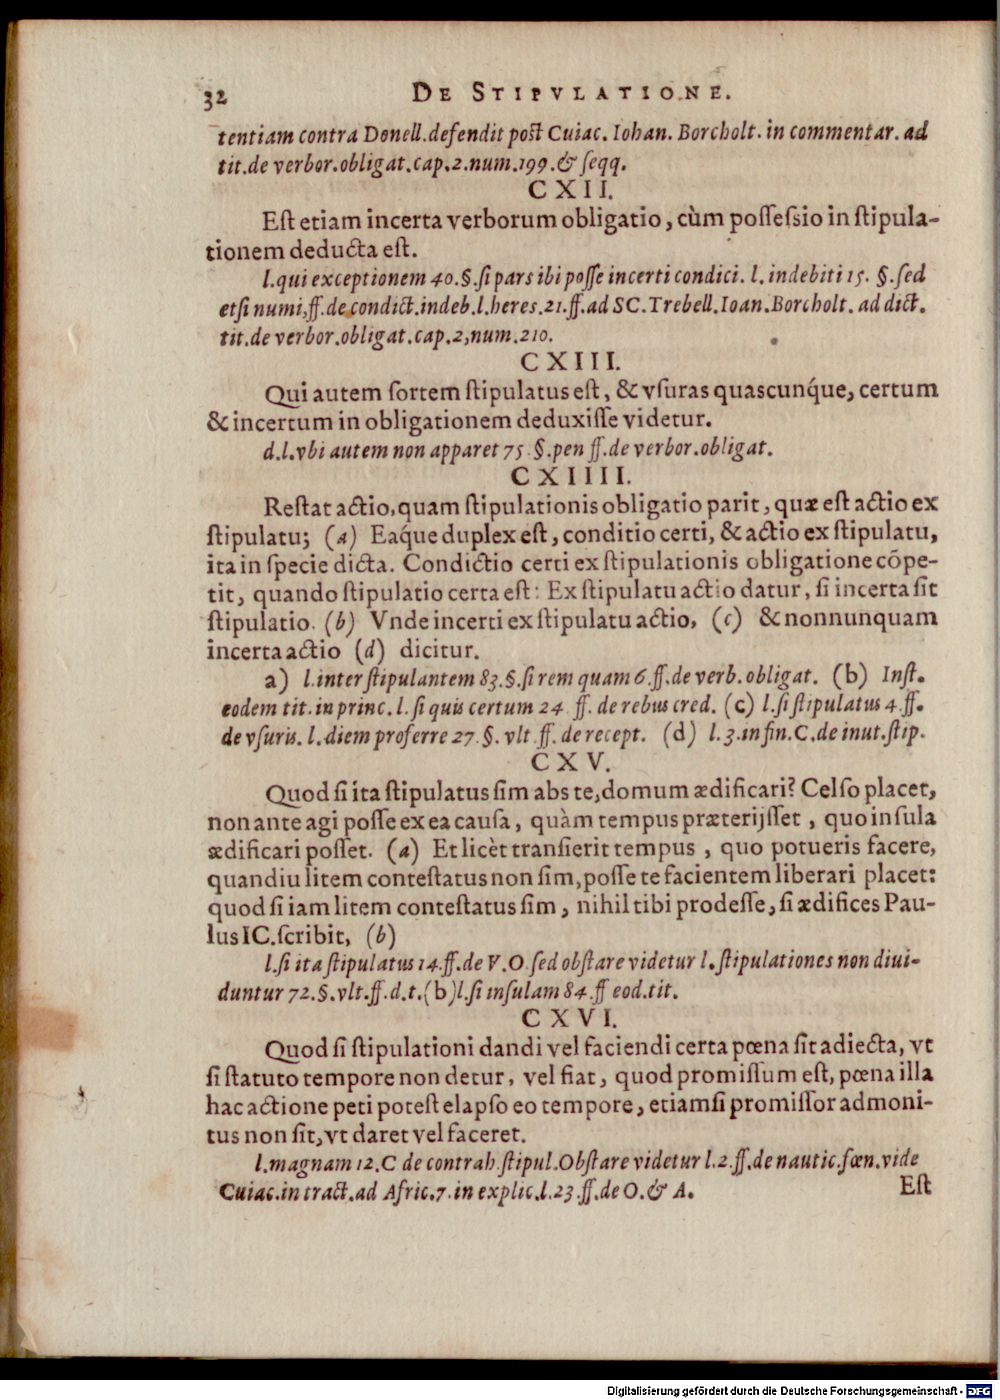 32 DE STIPVLATIONE.
tentiam contra Donell.defendit post Cuiac. Iohan. Borcholt. in commentar. ad
tit.de verbor.obligat.cap.2.num.199.& seqq.
CXII.
Est etiam incerta verborum obligatio, cùm possessio in stipula-
tionem deducta est.
l.qui exceptionem 40.§.si pars ibi posse incerti condici. l. indebiti 15. §.sed
etsi numi,ff.de condict.indeb.l.heres.21.ff.ad SC.Trebell.Ioan.Borcholt. ad dict.
tit.de verbor.obligat.cap.2,num.210.
CXIII.
Qui autem sortem stipulatus est, & vsuras quascunq́ue, certum
& incertum in obligationem deduxisse videtur.
d.l.vbi autem non apparet 75.§.pen ff.de verbor.obligat.
CXIIII.
Restat actio, quam stipulationis obligatio parit, quæ est actio ex
stipulatu; (a) Eaq́ue duplex est, conditio certi, & actio ex stipulatu,
ita in specie dicta. Condictio certi ex stipulationis obligatione cōpe-
tit, quando stipulatio certa est: Ex stipulatu actio datur, si incerta sit
stipulatio. (b) Vnde incerti ex stipulatu actio, (c) & nonnunquam
incerta actio (d) dicitur.
a) l.inter stipulantem 83.§.si rem quam 6.ff.de verb.obligat. (b) Inst.
eodem tit. in princ. l. si quis certum 24 ff. de rebus cred. (c) l.si stipulatus 4.ff.
de vsuris. l.diem proferre 27.§. vlt ff. de recept. (d) l.3.in fin.C.de inut.stip.
CXV.
Quod si ita stipulatus sim abs te, domum ædificari? Celso placet,
non ante agi posse ex ea causa, quàm tempus præterijsset, quo insula
ædificari posset. (a) Et licèt transierit tempus, quo potueris facere,
quandiu litem contestatus non sim, posse te facientem liberari placet:
quod si iam litem contestatus sim, nihil tibi prodesse, si ædifices Pau-
lus IC.scribit, (b)
l.si ita stipulatus 14.ff.de V.O.sed obstare videtur l.stipulationes non diui-
duntur 72.§.vlt.ff.d.t.(b)l.si insulam 84.ff eod.tit.
CXVI.
Quod si stipulationi dandi vel faciendi certa pœna sit adiecta, vt
si statuto tempore non detur, vel fiat, quod promissum est, pœna illa
hac actione peti potest elapso eo tempore, etiamsi promissor admoni-
tus non sit, vt daret vel faceret.
l.magnam 12.C de contrah.stipul.Obstare videtur l.2.ff.de nautic.fœn.vide
Cuiac.in tract.ad Afric.7.in explic.l.23.ff.de O.& A.
Est
Digitalisierung gefördert durch die Deutsche Forschungsgemeinschaft - DFG